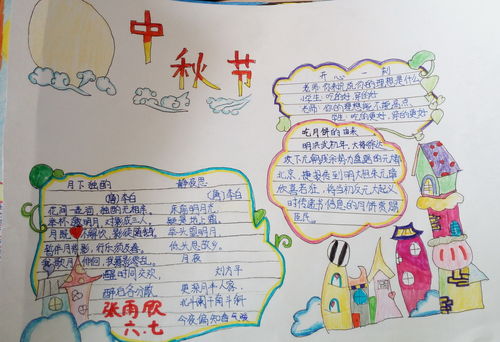 中秋节
开心一刻
老师：你来说点你的理想是什么
小学生：吃的好，穿的好
老师：你的理想能不能高点
学生：吃的更好，穿的更好
吃月饼的由来
明洪武初年，大将徐达
攻下元朝残余势力盘踞的元大都
北京，捷报传到
明太祖朱元璋
欣喜若狂，将当初反元大起义
时传递书信息的月饼赏赐
臣民。
月下独酌
(唐)李白
花间一壶酒，独酌无相亲。
举杯邀明月，对影成三人。
月既不解饮，影徒随我身。
暂伴月将影，行乐须及春。
醒时同交欢，
醉后各分散
静夜思
(唐)李白
床前明月光
疑是地上霜
举头望明月
低头思故乡。
月夜
刘方平
更深月半人家，
北斗阑干南斗斜
今夜偏知春气暖
张雨欣
六.七